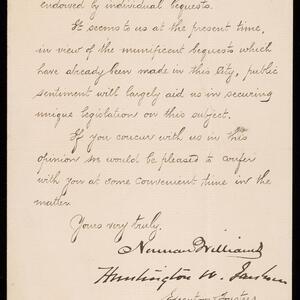 endowed by individual bequests.
It seems to us at the present time,
in view of the munificent bequests which
have already been made in this City, public
sentiment will largely aid us in securing
unique legislation on this subject.
If you concur with us in this
opinion we would be pleased to confer
with you at some convenient time in the
matter.
Yours very truly,
Norman Williams
Huntington W. Jackson
Executors & Trustees